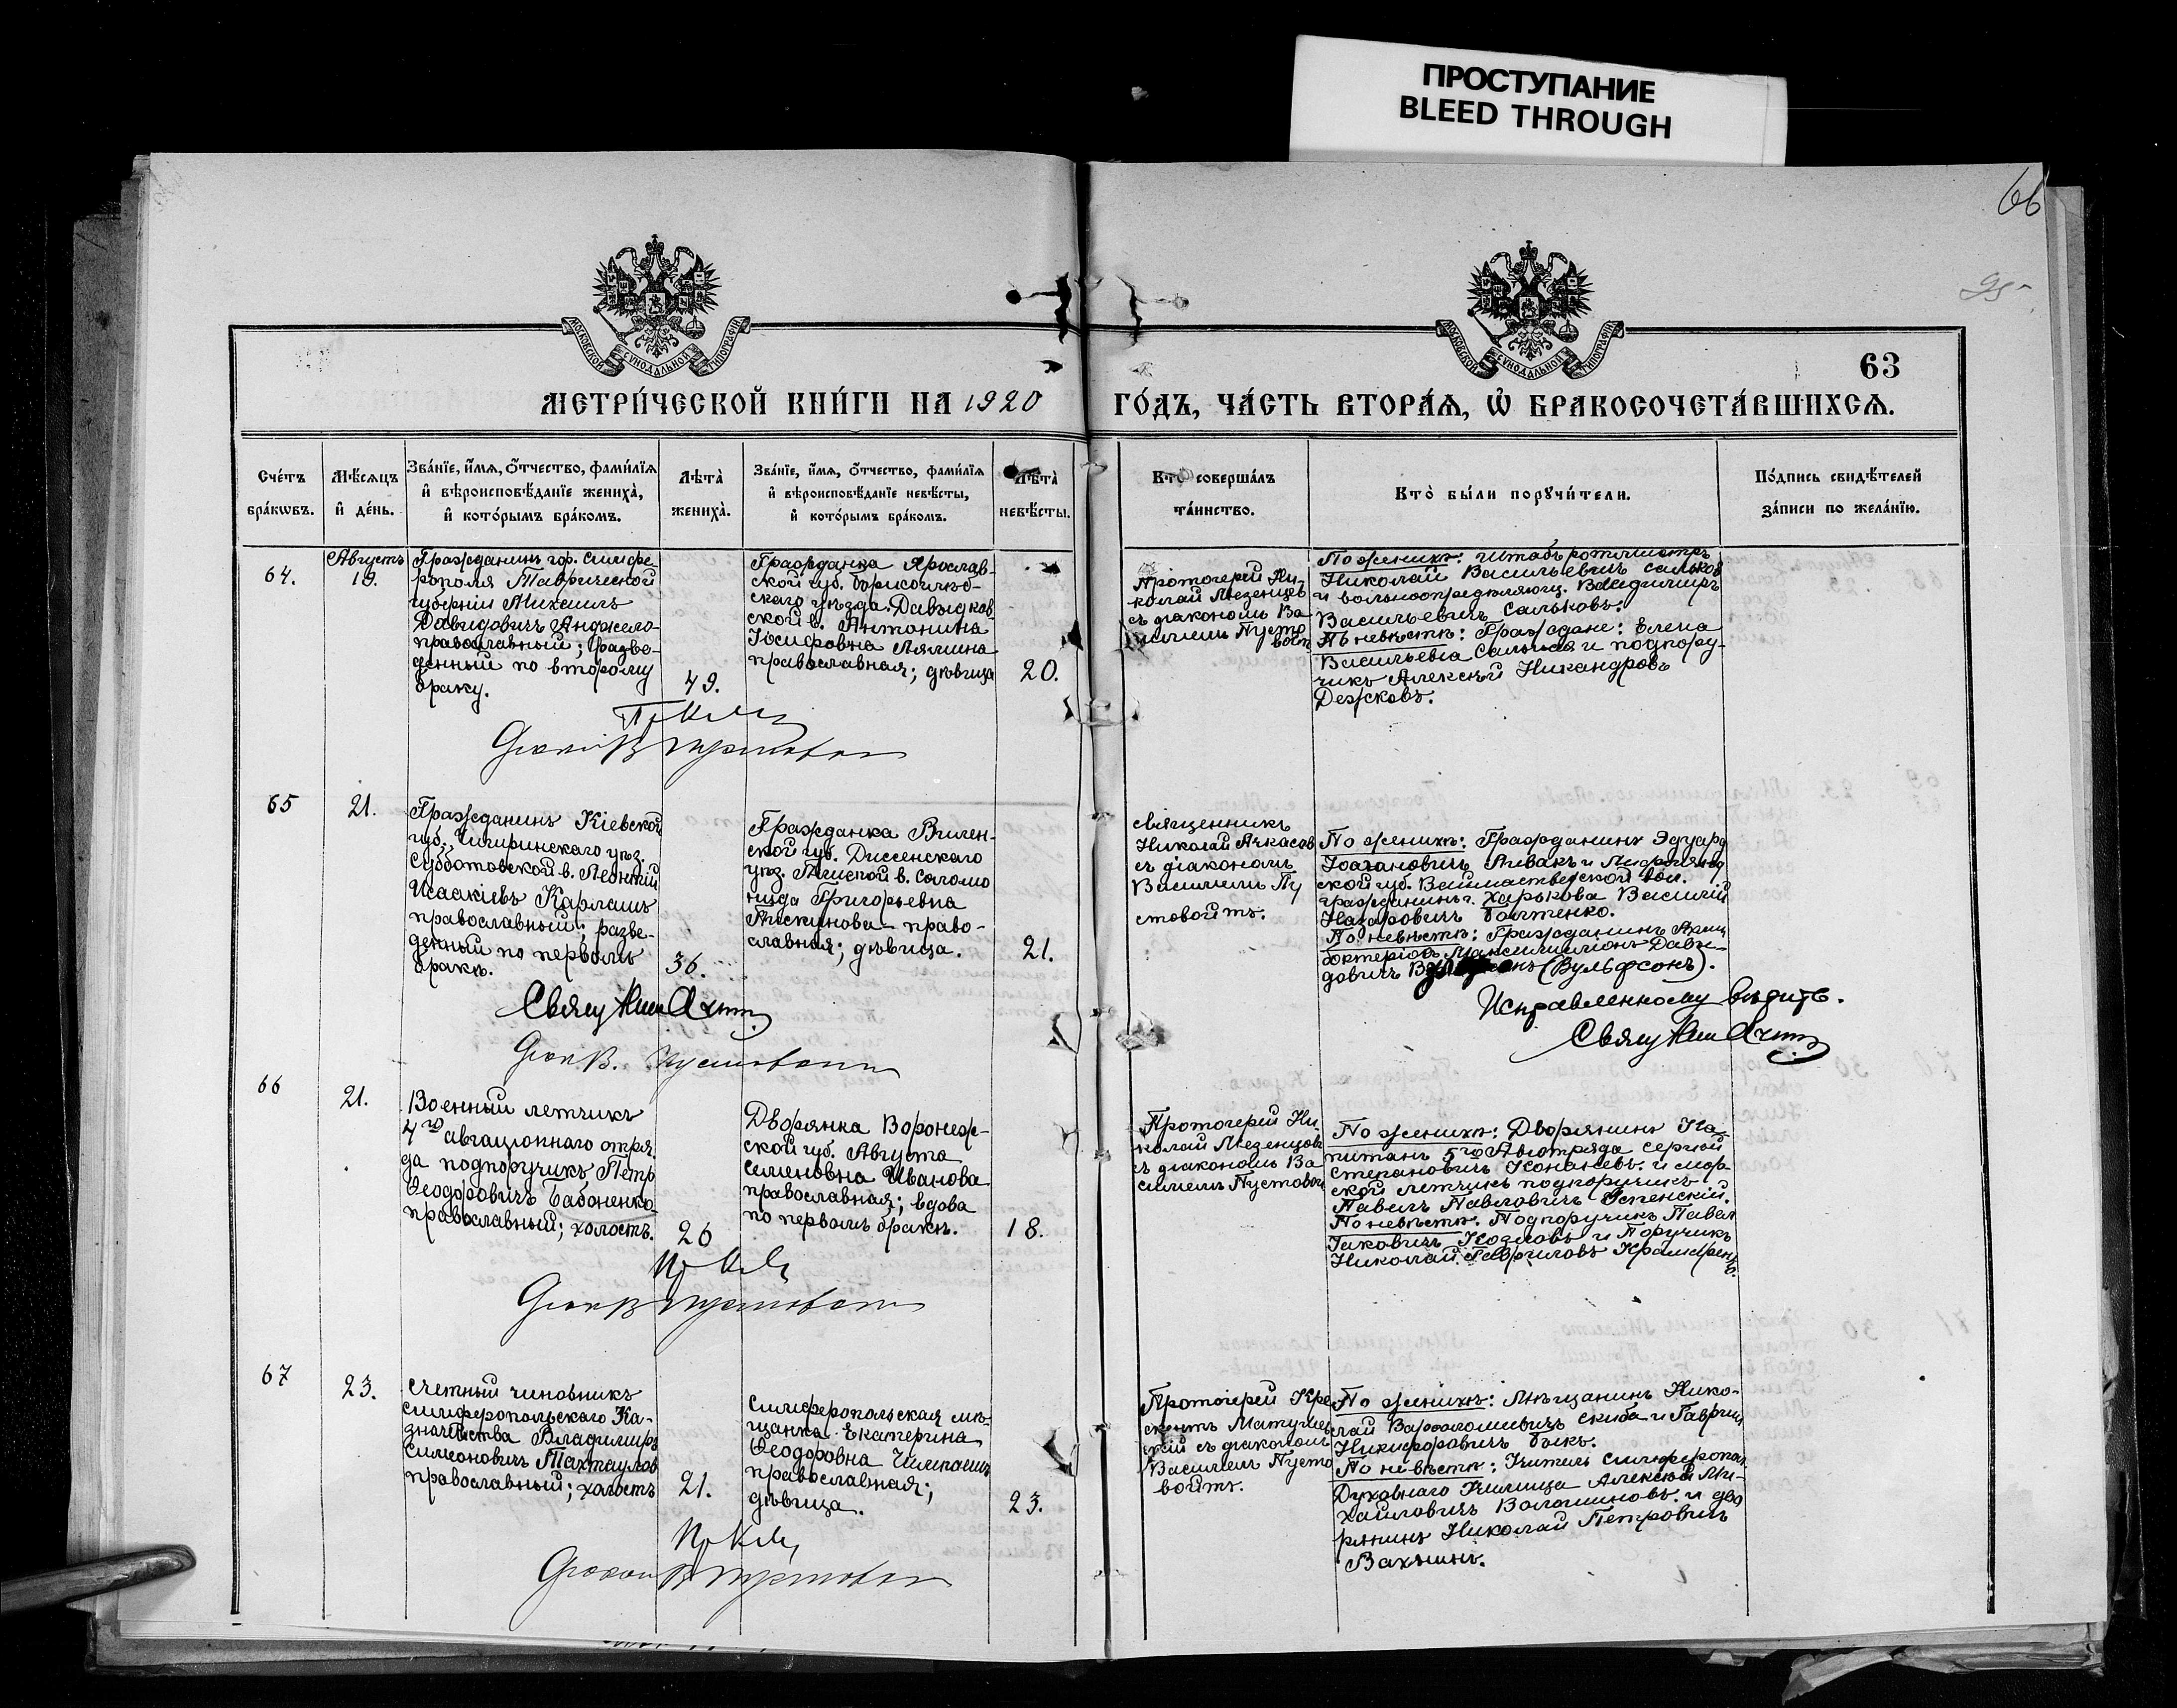 ПРОСТУПАНИЕ
BLEED THROUGH
66
95
МОСКОВСКОЙ СѴНОДАЛЬНОЙ ТИПОГРАФІИ
МОСКОВСКОЙ СѴНОДАЛЬНОЙ ТИПОГРАФІИ
63
МЕТРИ́ЧЕСКОЙ КНИ́ГИ НА 1920 ГО́ДЪ, ЧА́СТЬ ВТОРА́Я, Ѽ БРАКОСОЧЕТА́ВШИХСЯ.
Сче́тъ
бра́кѡвъ.
Мѣ́сяцъ
и҆ де́нь.
Зва́нїе, и҆́мя, ѻ҆́тчество, фами́лїя
и҆ вѣроисповѣ́данїе жениха̀,
и҆ кото́рымъ бра́комъ.
Лѣта̀
жениха̀.
Зва́нїе, и҆́мя, ѻ҆́тчество, фами́лїя
и҆ вѣроисповѣ́данїе невѣ́сты,
и҆ кото́рымъ бра́комъ.
Лѣта̀
невѣ́сты.
Кто̀ соверша́лъ
та́инство.
Кто̀ бы́ли порꙋчи́тели.
По́дпись свидѣ́телей
за́писи по жела́нїю.
64.
Августъ
19.
Гражданинъ гор. Симфе-
рополя Таврической
губерніи Михаилъ
Давидовичъ Анджело
православный; разве-
денный по второму
браку.
49.
Гражданка Ярослав-
ской губ. Борисоглѣб-
скаго уѣзда. Давыдков-
ской в. Антонина
Іосифовна Лялина
православная; дѣвица
20.
Протоіерей Ни-
колай Мезенцевъ
съ діакономъ Ва-
силіемъ Пусто
войт
По женихѣ: Штабъ ротмистръ
Николай Васильевичъ Сальковъ
и вольноопредѣляющ. Владимиръ
Васильевичъ Сальковъ.
По невѣстѣ: Граждане: Елена
Васильевна и подпору-
чикъ Алексѣй Никандровъ
Дежковъ.
65
21.
Гражданинъ Кіевской
губ., Чигиринскаго уѣз.
Субботовской в. Леонтій
Исаакіевъ Карлашъ
православный; разве-
денный по первомъ
бракѣ.
36.
Гражданка Вилен-
ской губ. Дисненскаго
уѣз. в. Саломо
нида Григорьевна
Пискунова право-
славная; дѣвица.
21.
Священникъ
Николай Ачкасовъ
съ діакономъ
Василіемъ Пу
стовойтъ.
По женихѣ: Гражданинъ Эдуард
Іоаганновичъ и Лифлянд
ской губ. вол.
гражданинъ г. Харькова Василій
Назаровичъ Болтенко.
По невѣстѣ: Гражданинъ
Максимиліонъ Давы-
довичъ (Вульфсонъ).
Исправленному вѣрить.
66
21.
Военный летчикъ
4го авіаціоннаго отря
да подпоручикъ Петр
Ѳеодоровичъ Бабоненко
православный; холостъ.
26
Дворянка Воронеж-
ской губ. Августа
Семеновна Иванова
православная; вдова
по первомъ бракѣ.
18.
Протоіерей Ни-
колай Мезенцовъ
съ діакономъ Ва
силіемъ Пустовой
По женихѣ: Дворянинъ Ка-
питанъ 5го Авіотряда Сергѣй
Степановичъ Конаневъ. и мор-
ской летчикъ подпоручикъ
Павелъ Павловичъ Успенскій.
По невѣстѣ. Подпоручикъ Павел
Іаковичъ Козловъ и Поручикъ
Николай Гавриловъ
67
23.
Счетный чиновникъ
Симферопольскаго Ка-
значейства Владимиръ
Симеоновичъ Тахтауловъ
православный; холостъ
21.
Симферопольская мѣ-
щанка Екатерина
Ѳеодоровна
православная;
дѣвица.
23.
Протоіерей Кре
скентъ Матушев
скій съ діакономъ
Василіемъ Пусто
войтъ.
По женихѣ: Мѣщанинъ Нико-
лай Варфоломѣевичъ Скиба и Гавріилъ
Никифоровичъ Быкъ.
По невѣстѣ: Учитель Симферопол
Духовнаго Училища Алексѣй Ми-
хайловичъ Волошиновъ. и дво
рянинъ Николай Петровичъ
Вахнинъ.